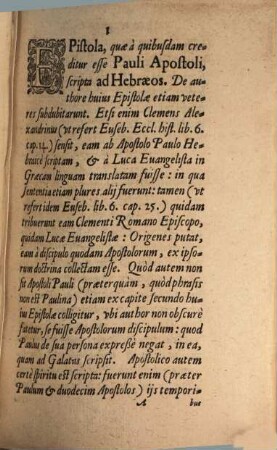 I
EPistola, quæ à quibusdam cre-
ditur esse Pauli Apostoli,
scripta ad Hebræos. De au-
thore huius Epistolæ etiam vete-
res subdubitarunt. Etsi enim Clemens Ale-
xandrinus (vt refert Euseb. Eccl. hist. lib. 6.
cap. 14.) sensit, eam ab Apostolo Paulo He-
braicè scriptam, & à Luca Euangelista in
Græcam linguam translatam fuisse: in qua
sententia etiam plures alij fuerunt: tamen (vt
refert idem Euseb. lib. 6. cap. 25.) quidam
tribuerunt eam Clementi Romano Episcopo,
quidam Lucæ Euangelistæ: Origenes putat,
eam à discipulo quodam Apostolorum, ex ipso-
rum doctrina collectam esse. Quòd autem non
sit Apostoli Pauli (præterquàm, quòd phrasis
non est Paulina) etiam ex capite secundo hu-
ius Epistolæ colligitur, vbi author non obscurè
fatetur, se fuisse Apostolorum discipulum: quod
Paulus de sua persona expressè negat, in ea,
quam ad Galatas scripsit. Apostolico autem
certè spiritu est scripta: fuerunt enim (præter
Paulum & duodecim Apostolos) ijs tempori-
A bus